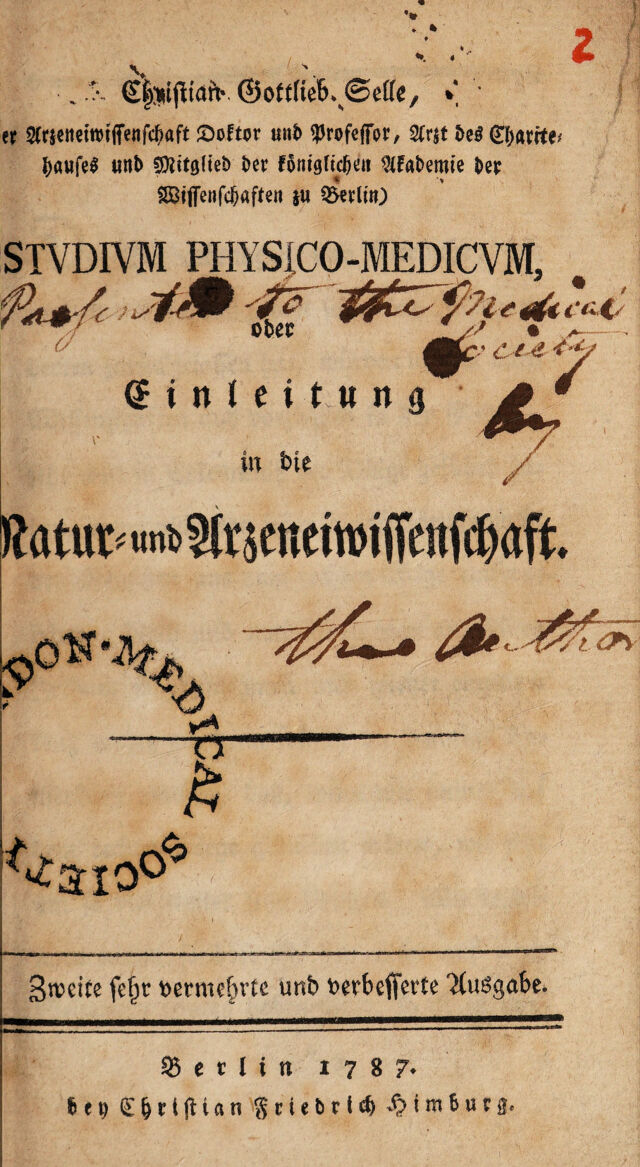 2
Christian Gottlieb Selle,
er Arzeneiwissenschaft Doktor und Professor, Arzt des Charite-
hauses und Mitglied der königlichen Akademie der
Wissenschaften zu Berlin)
STVDIVM PHYSICO-MEDICVM,
Presented to the Medical
oder
Society
Einleitung
by
in die
Natur- und Arzeneiwissenschaft.
the Author
NDON · MEDICAL SOCIETY
Zweite sehr vermehrte und verbesserte Ausgabe.
Berlin 1787.
bey Christian Friedrich Himburg.